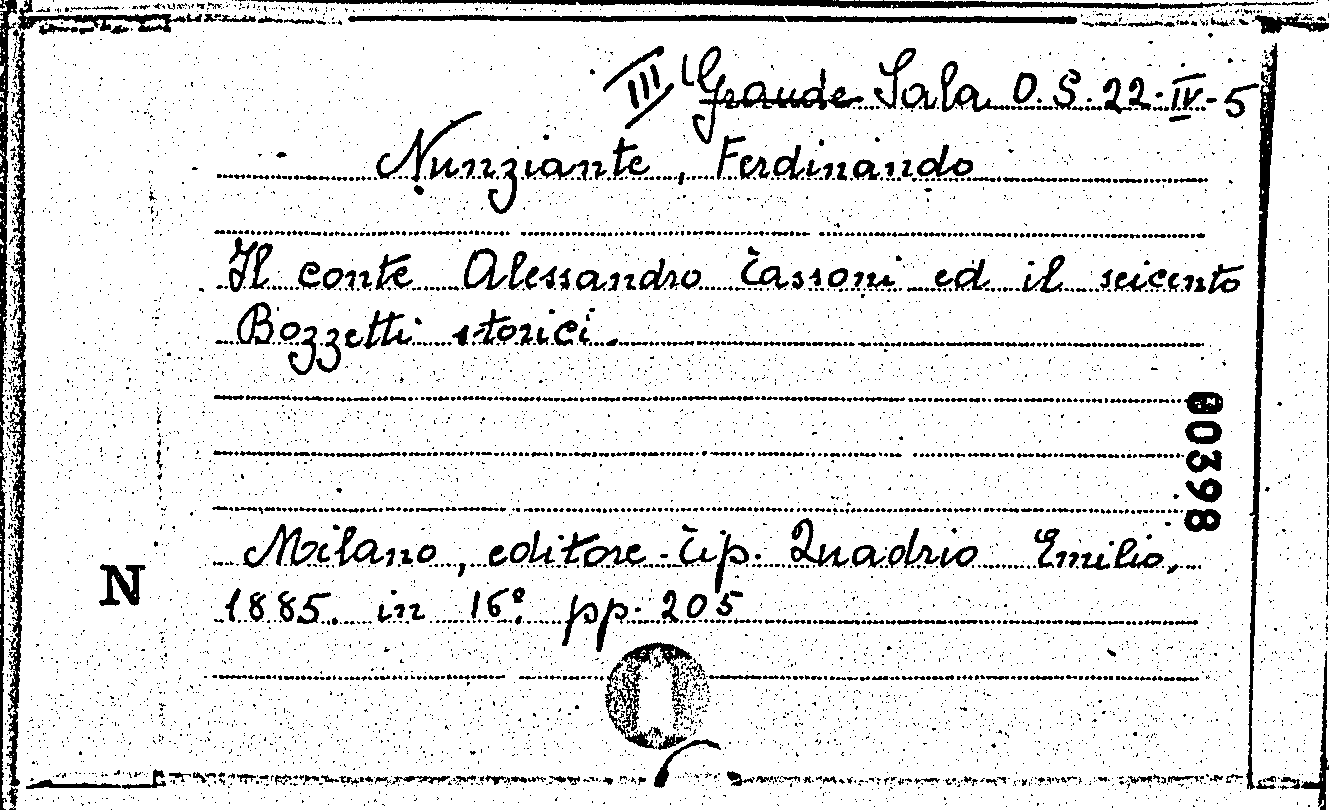 III Grande Sala O.S. 22-IV-5
Nunziante, Ferdinando
Il conte Alessandro Tassoni ed il seicento
Bozzetti storici.
00398
Milano, editore-tip. Quadrio Emilio,
N
1885. in 16º. pp. 205